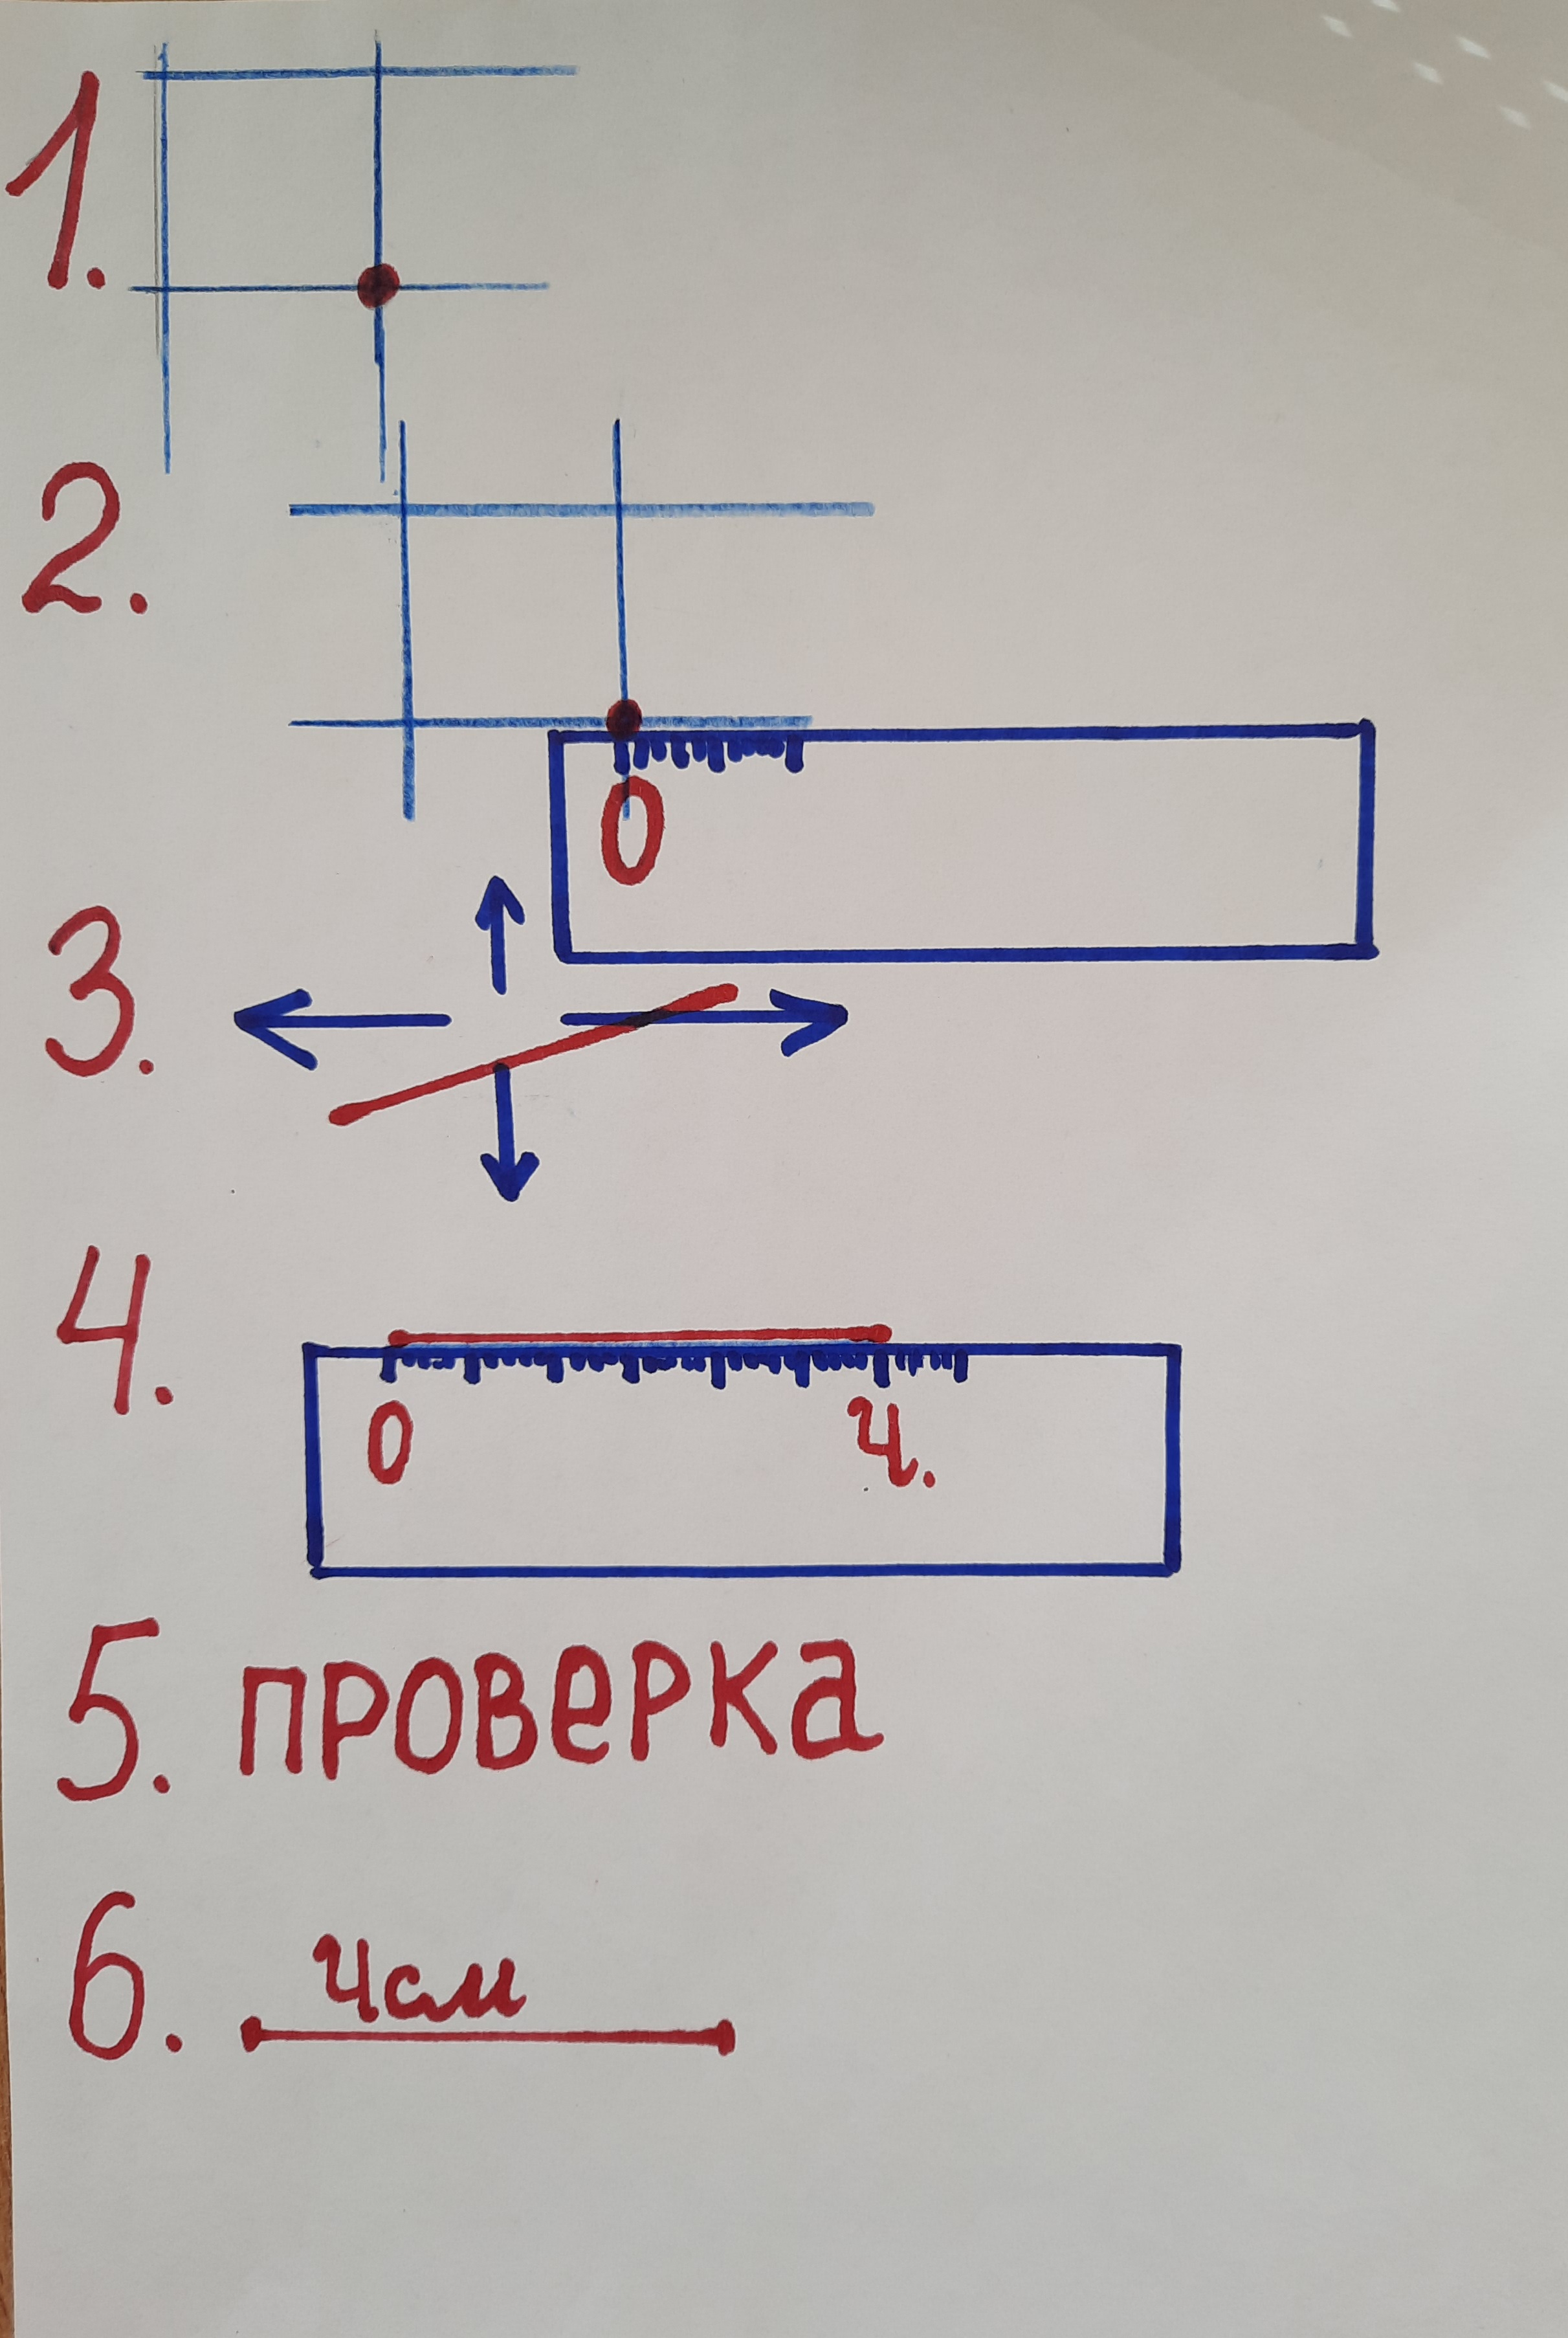 1.
2.
0
3.
4.
0 4.
5. проверка
6. 4см